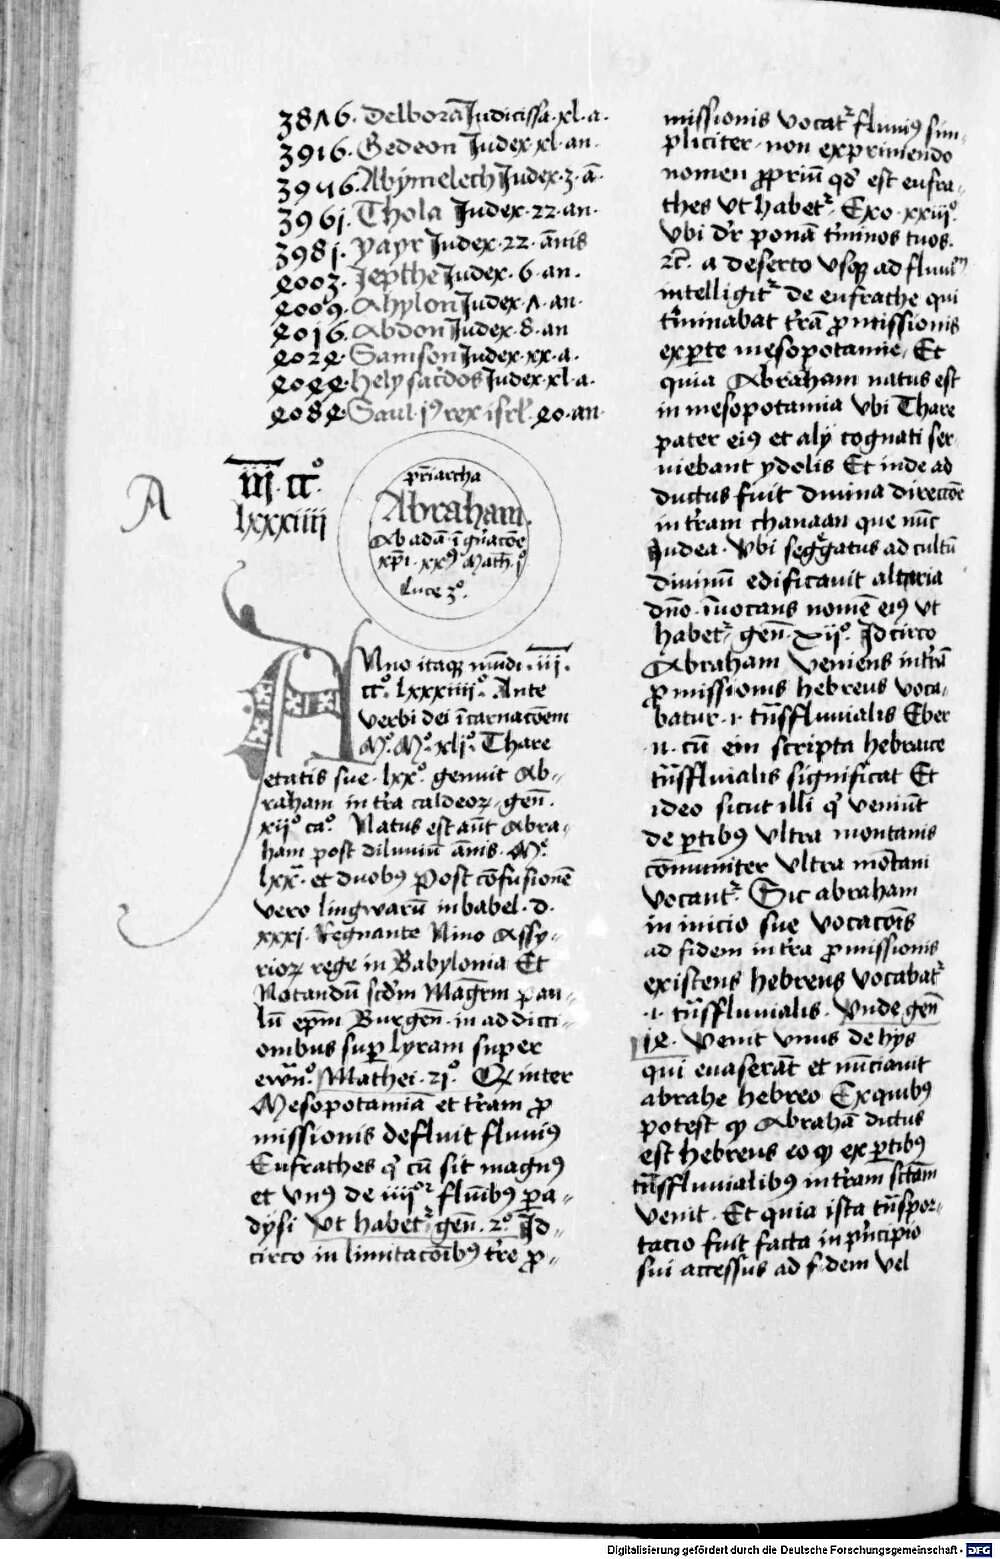 3876. Delborā Judicissa. xl. a.
3916. Gedeon Judex. xl. an.
3956. Abymelech Judex. 3. ā
3961. Thola Judex. 22. an.
3981. yayr Judex. 22. ānis
4003. Jepthe Judex. 6. an.
4009. Ahylon Judex. 7. an.
4016. Abdon Judex. 8. an
4024. Samson Judex. xx. a.
4044. hely sac̄dos Judex. xl. a.
4084. Saul. jꝰ rex isrl. 40. an
A
iij. ccͦ.
lxxxiiij
pr̄iarcha
Abraham.
Ab adā ī gn̄acōe
xp̄i. xxꝰ Math. jͦ
Luce 3ͦ.
Anno itaqꝫ mūdi. iij.
ccͦ. lxxxiiijͦ. Ante
verbi dei īcarnacōem
Mͦ. Mͦ. xljͦ. Thare
etatis sue. lxxͦ. genuit Ab-
raham in tr̄a caldeoꝝ. gen̄.
xijͦ caͦ. Natus est aūt Abra-
ham post diluviū ānis. Mͦ.
lxx. et duobꝰ post cōfusionē
vero lingwarū in babel. d.
xxxj. Regnante Nino Assy-
rioꝝ rege in Babylonia Et
Notandū scd̄m Magr̄m pau-
lū ep̄m Burgen̄. in addicci-
onibus suꝑ lyram super
ewn̄ͦ. Mathei. 21ͦ. Ꝙ inter
Mesopotamiā et tr̄am ꝓ
missionis defluit fluuiꝰ
Eufrathes qͥ cū sit magnꝰ
et vnꝰ de iiijoꝛ flūibꝰ ꝑa-
dysi vt habetᷣ gen̄. 2ͦ. Id-
circo in limitacōibꝰ tr̄e ꝓ-
missionis vocatᷣ fluuiꝰ sim-
pliciter. non exprimendo
nomen ꝓpriū qd̄ est eufra-
thes vt habetᷣ. Exo. xxiijͦ.
vbi dr̄ ponā t̄minos tuos.
⁊c̄. a deserto vsqꝫ ad fluuiū
intelligitᷣ de eufrathe qui
t̄minabat tr̄ā ꝓmissionis
ex ꝑte mesopotamie. Et
quia Abraham natus est
in mesopotamia vbi Thare
pater eiꝰ et alij cognati ser-
uiebant ydolis Et inde ad
ductus fuit diuina direccōe
in tr̄am chanaan que nūc
Judea. vbi seggͤatus ad cultū
diuinū edificauit altaria
dn̄o. īuocans nomē eiꝰ vt
habetᷣ gen̄. xijͦ. Idcirco
Abraham veniens in tr̄ā
ꝓmissionis hebreus voca-
batur. i. tn̄sfluuialis Eber
n. cū ein scripta hebraice
tn̄sfluuialis significat Et
ideo sicut illi qͥ veniūt
de ꝑtibꝰ vltra montanis
cōmuniter vltra mōtani
vocantᷣ. Sic abraham
in inicio sue vocacōis
ad fidem in tr̄a ꝓmissionis
existens hebreus vocabatᷣ
.i. tn̄sfluuialis. vnde gen̄
14. Venit vnus de hijs
qui euaserāt et nūciauit
abrahe hebreo Ex quibꝰ
potest ꝙ Abrahā dictus
est hebreus eo ꝙ ex ꝑtibꝰ
tn̄sfluuialibꝰ in tr̄am sctām
venit. Et quia ista tn̄spor-
tacio fuit facta in pͥncipio
sui accessus ad fidem vel
Digitalisierung gefördert durch die Deutsche Forschungsgemeinschaft - DFG